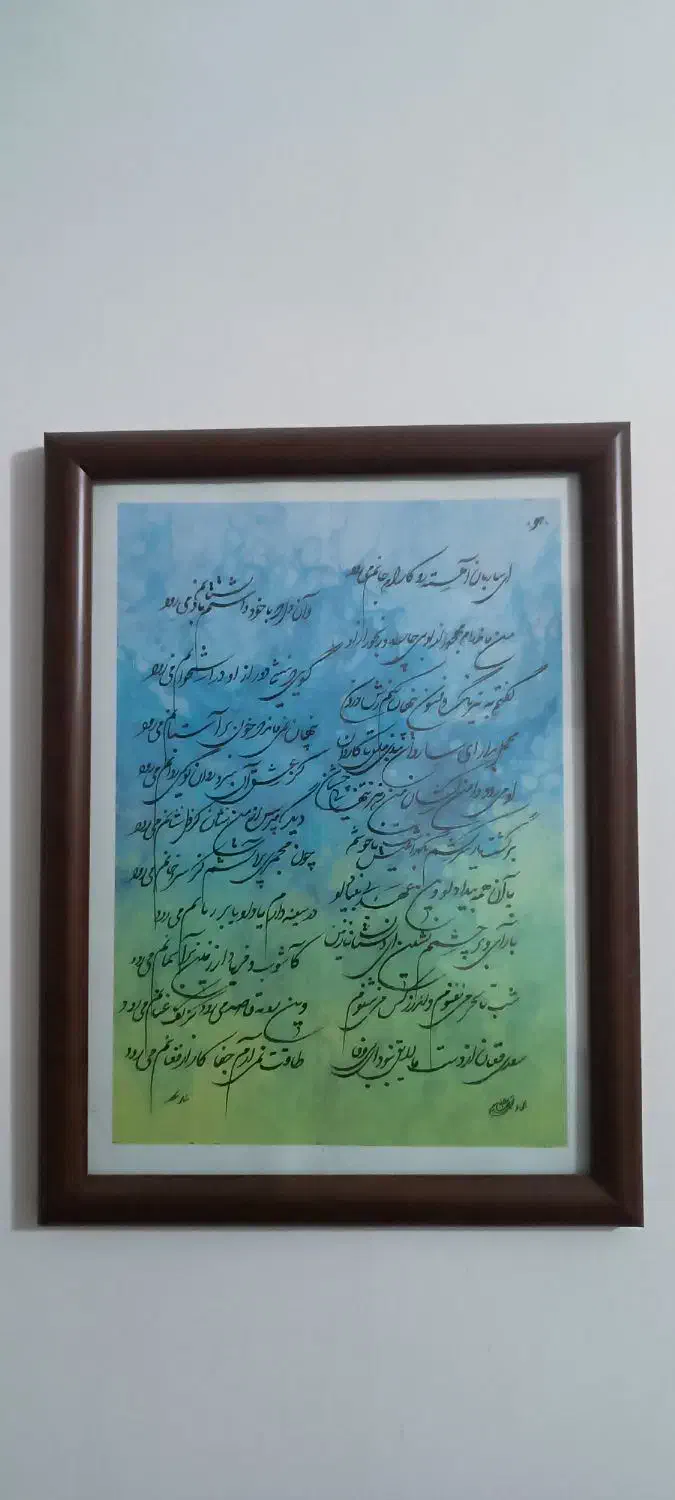 هو
ای ساربان آهسته رو کارام جانم می‌رود
وآن دل که با خود داشتم با دلستانم می‌رود
من مانده‌ام مهجور از او بیچاره و رنجور از او
گویی که نیشی دور از او در استخوانم می‌رود
گفتم به نیرنگ و فسون پنهان کنم ریش درون
پنهان نمی‌ماند که خون بر آستانم می‌رود
محمل بدار ای ساروان تندی مکن با کاروان
کز عشق آن سرو روان گویی روانم می‌رود
او می‌رود دامن کشان من زهر تنهایی چشان
دیگر مپرس از من نشان کز دل نشانم می‌رود
برگشت یار سرکشم بگذاشت عیش ناخوشم
چون مجمری پر آتشم کز سر دخانم می‌رود
با آن همه بیداد او وین عهد بی بنیاد او
در سینه دارم یاد او یا بر زبانم می‌رود
بازآی و بر چشمم نشین ای دلستان نازنین
کآشوب و فریاد از زمین بر آسمانم می‌رود
شب تا سحر می‌نغنوم و اندرز کس می‌نشنوم
وین ره نه قاصد می‌رود کز کف عنانم می‌رود
سعدی فغان از دست ما لایق نبود ای بی‌وفا
طاقت نمی‌آرم جفا کار از فغانم می‌رود